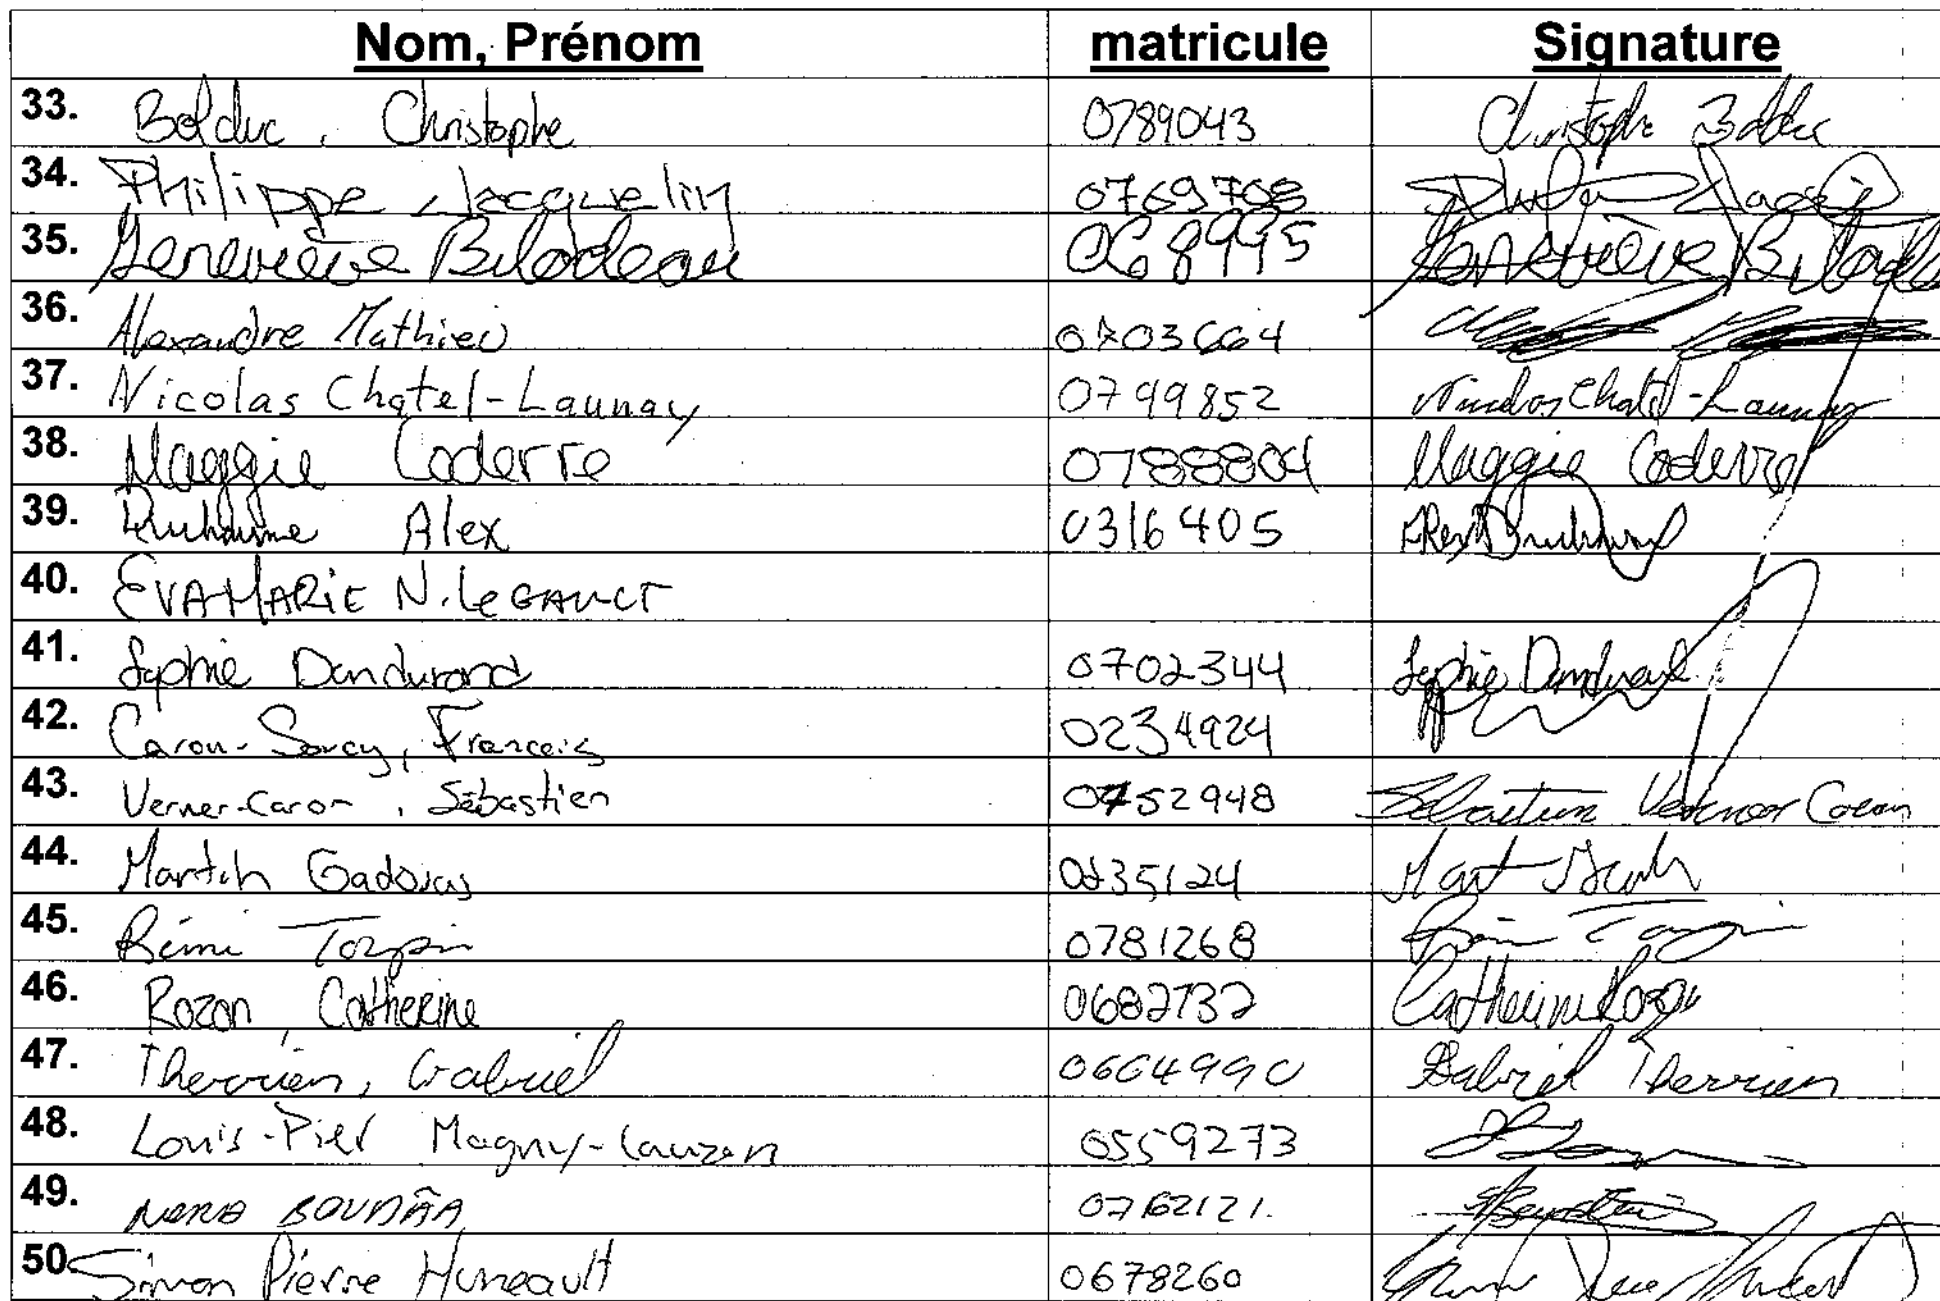 Nom, Prénom matricule Signature
33. Bolduc, Christophe 0789043 Christophe Bolduc
34. Philippe Jacquelin 0769708
35. Geneviève Bilodeau 068995 Geneviève Bilodeau
36. Alexandre Mathieu 0703664
37. Nicolas Chatel-Launay 0799852 Nicolas Chatel-Launay
38. Maggie Coderre 0788804 Maggie Coderre
39. Duhaime Alex 0316405 Alex Duhaime
40. EVA-MARIE N. LEGAULT
41. Sophie Dandurand 0702344 Sophie Dandurand
42. Caron-Soucy, François 0234924
43. Verner-Caron, Sébastien 0752948 Sébastien Verner Caron
44. Martin 0235124
45. Rémi 0781268 Rémi
46. Rozon, Catherine 0682732 Catherine Rozon
47. Therrien, Gabriel 0664990 Gabriel Therrien
48. Louis-Pier Magny-Lauzon 0559273
49. 0762121.
50. Simon Pierre Huneault 0678260